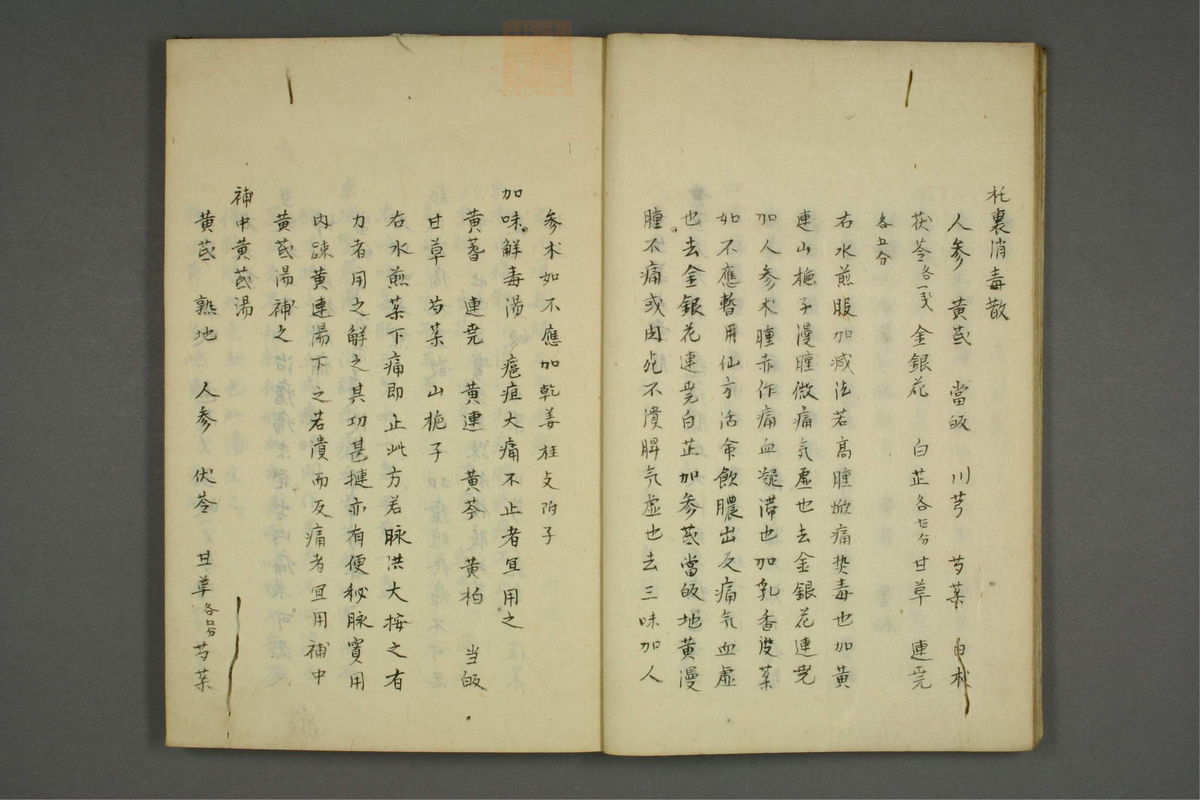 托裏消毒散
人参 黄芪 當皈 川芎 芍薬 白朮
茯苓各一戔 金銀花 白芷各七分 甘草 連壳
各五分
右水煎服加减法若髙腫焮痛𤍠毒也加黄
連山梔子漫腫微痛気虚也去金銀花連壳
加人参朮腫赤作痛血凝滞也加乳香没薬
如不應暫用仙方活命飲膿出反痛気血虚
也去金銀花連壳白芷加参芪當皈地黄漫
腫不痛或肉死不潰脾気虚也去三味加人
参朮如不應加乾姜桂支附子
加味解毒湯 癰疽大痛不止者冝用之
黄蓍 連壳 黄連 黄芩 黄柏 当皈
甘草 芍薬 山梔子
右水煎薬下痛即止此方若脉洪大按之有
力者用之解之其功甚捷亦有便秘脉實用
内疎黄連湯下之若潰而反痛者冝用補中
黄芪湯補之
補中黄芪湯
黄芪 熟地 人参 伏苓 甘草各 芍薬